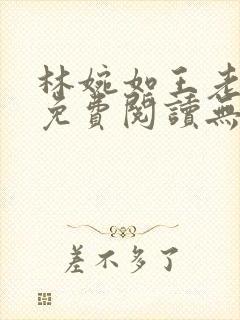 林婉如王老
免費閱讀無
差不多了